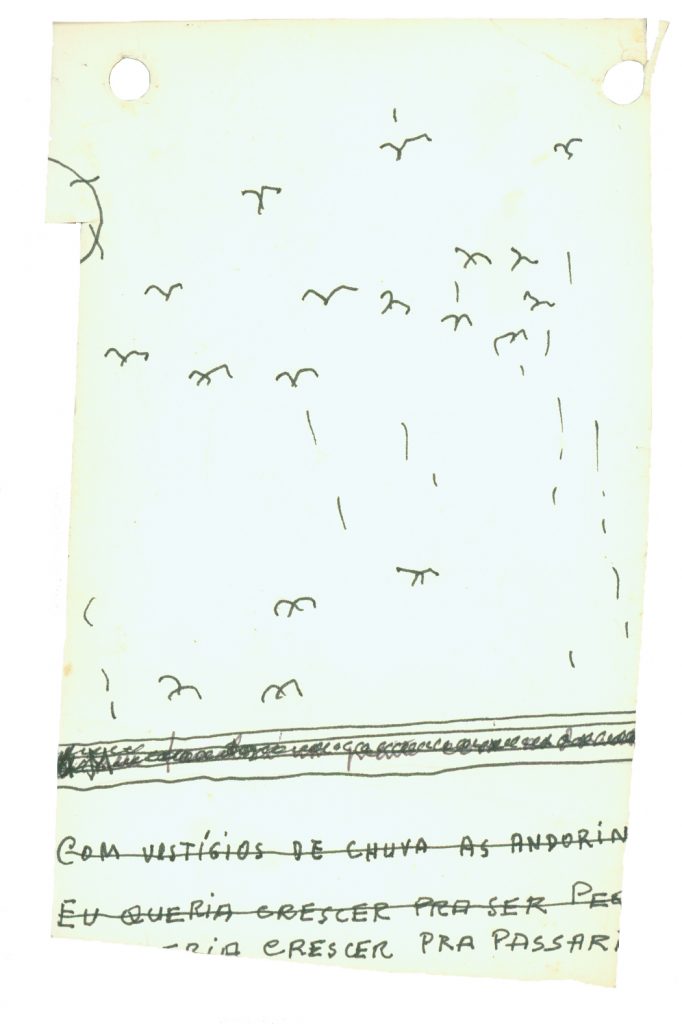 COM VESTÍGIOS DE CHUVA AS ANDORIN
EU QUERIA CRESCER PRA SER
ERIA CRESCER PRA PASSARI